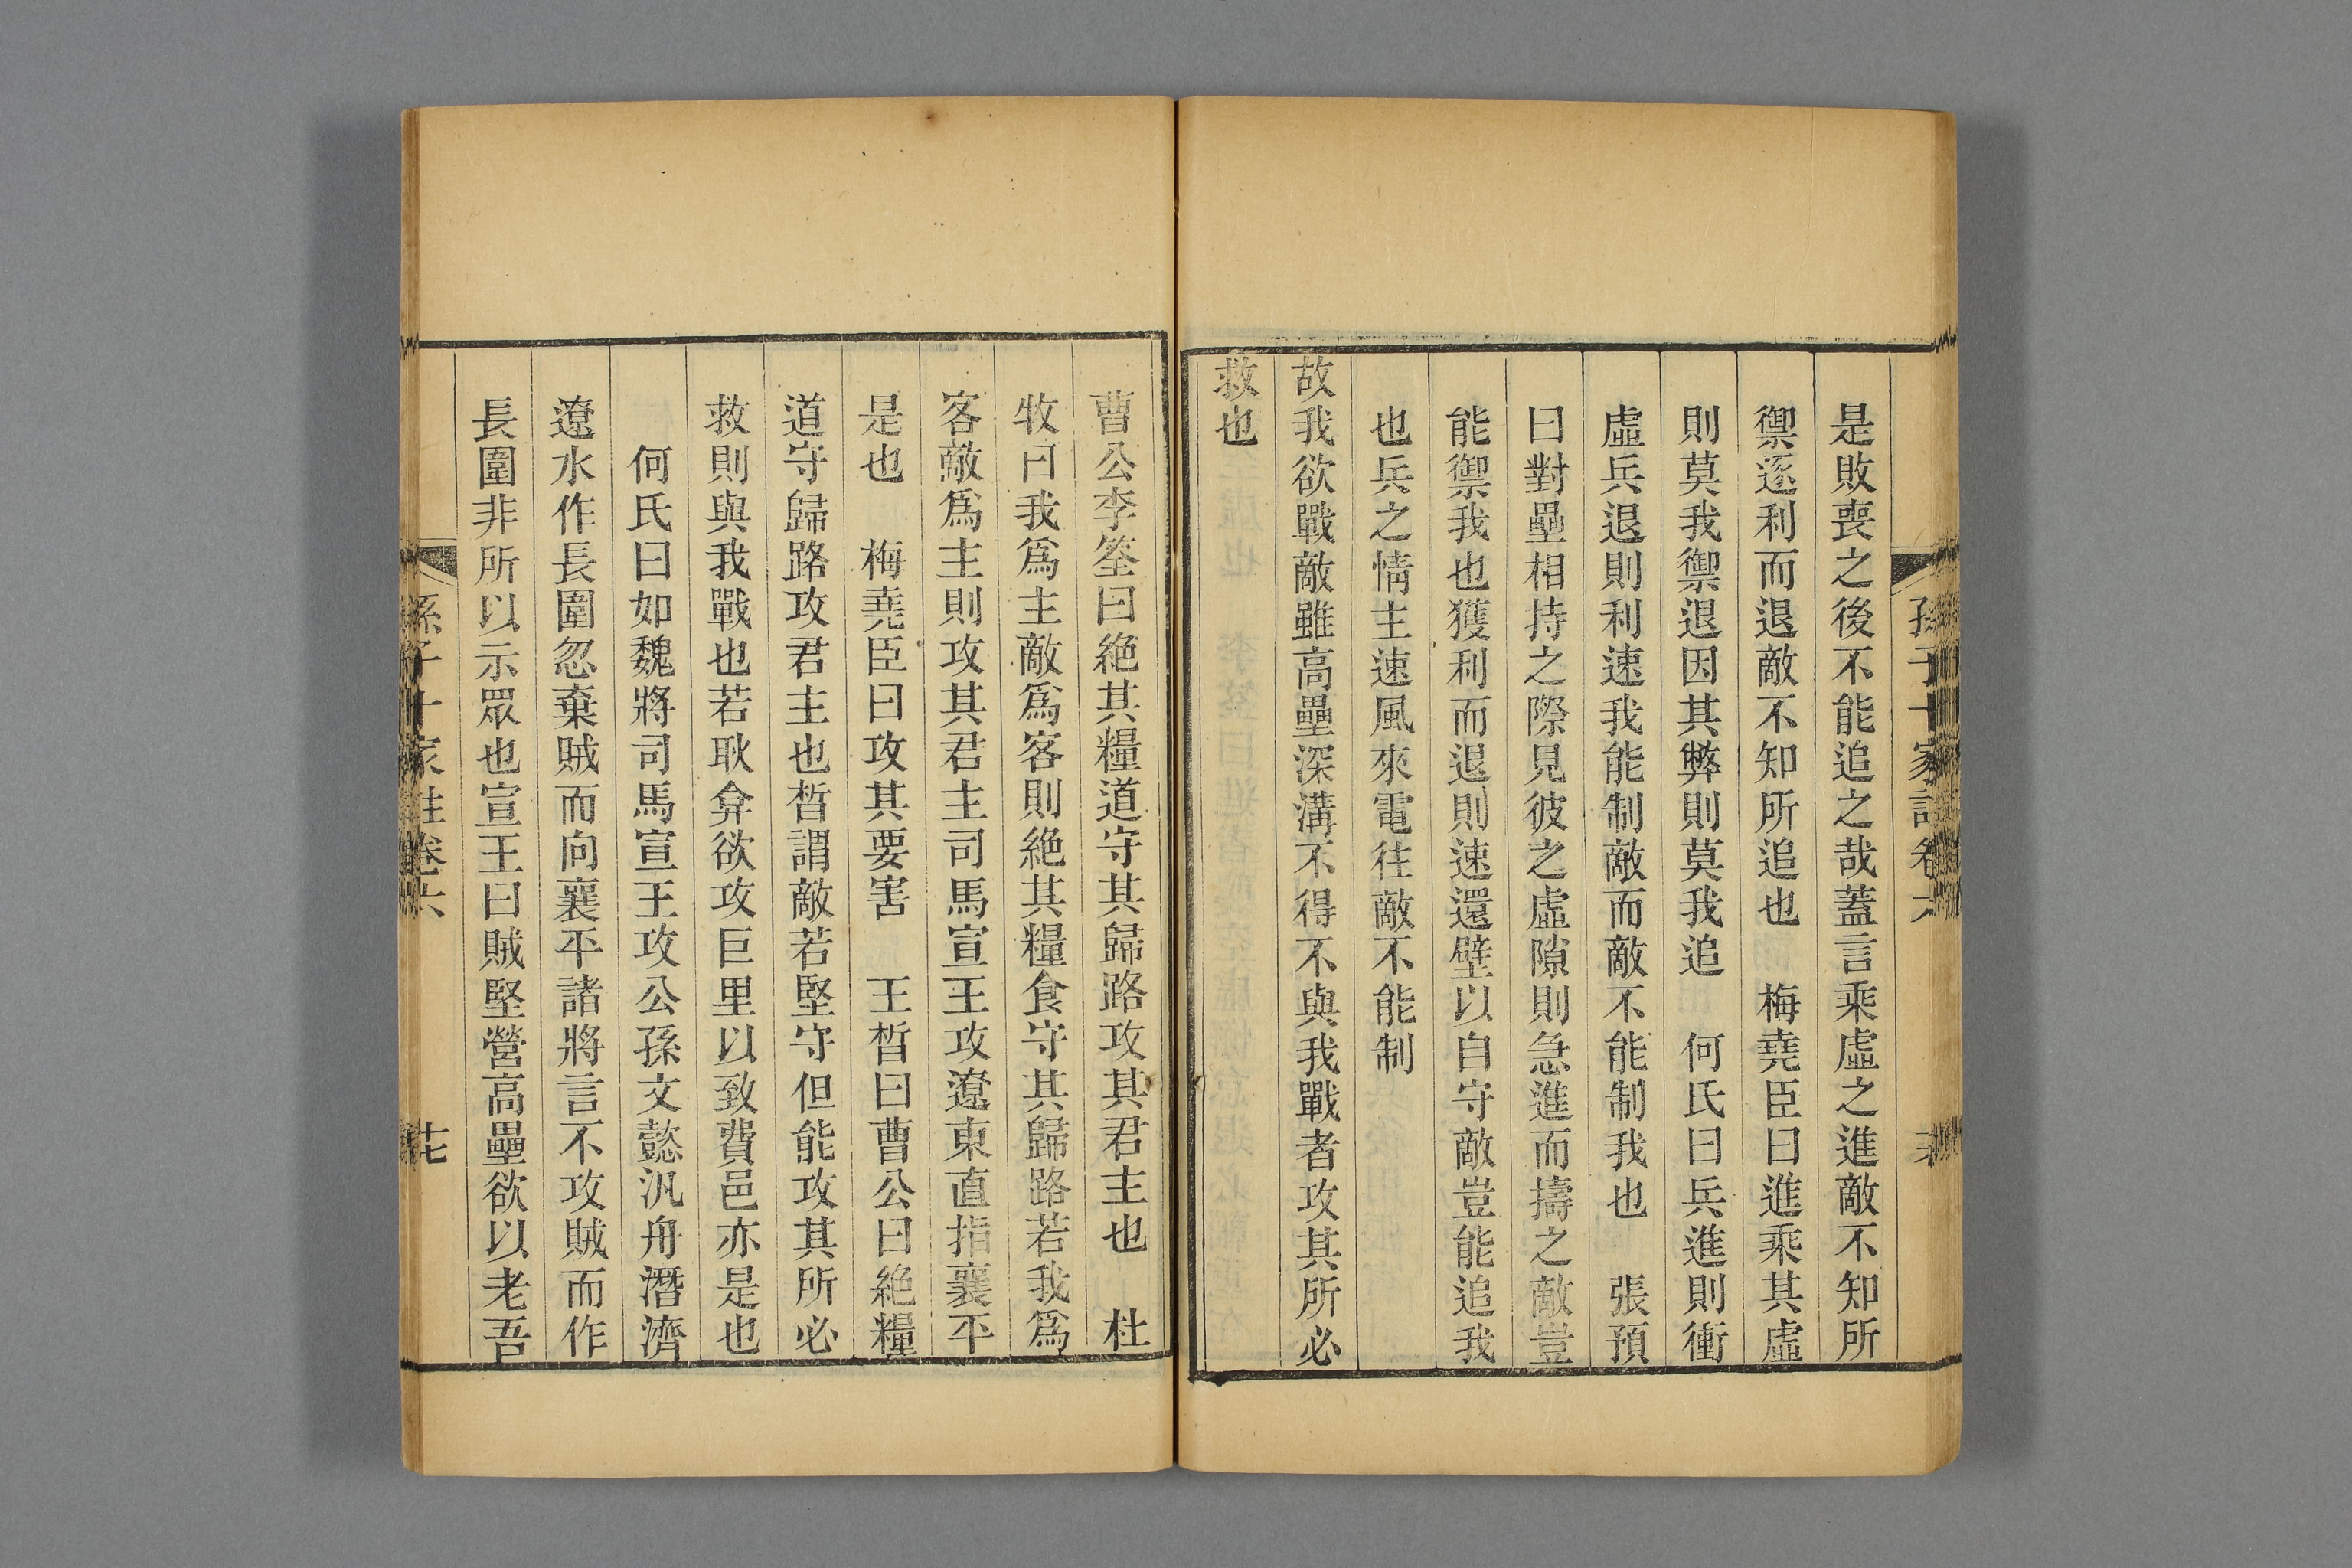 孫子十家註卷六
是敗喪之後不能追之哉蓋言乘虛之進敵不知所
禦逐利而退敵不知所追也　梅堯臣曰進乘其虛
則莫我禦退因其弊則莫我追　何氏曰兵進則衝
虛兵退則利速我能制敵而敵不能制我也　張預
曰對壘相持之際見彼之虛隙則急進而擣之敵豈
能禦我也獲利而退則速還壁以自守敵豈能追我
也兵之情主速風來電往敵不能制
故我欲戰敵雖高壘深溝不得不與我戰者攻其所必
救也
曹公李筌曰絕其糧道守其歸路攻其君主也　杜
牧曰我爲主敵爲客則絕其糧食守其歸路若我爲
客敵爲主則攻其君主司馬宣王攻遼東直指襄平
是也　梅堯臣曰攻其要害　王晳曰曹公曰絕糧
道守歸路攻君主也晳謂敵若堅守但能攻其所必
救則與我戰也若耿弇欲攻巨里以致費邑亦是也
何氏曰如魏將司馬宣王攻公孫文懿汎舟潛濟
遼水作長圍忽棄賊而向襄平諸將言不攻賊而作
長圍非所以示眾也宣王曰賊堅營高壘欲以老吾
孫子十家註卷六
十七